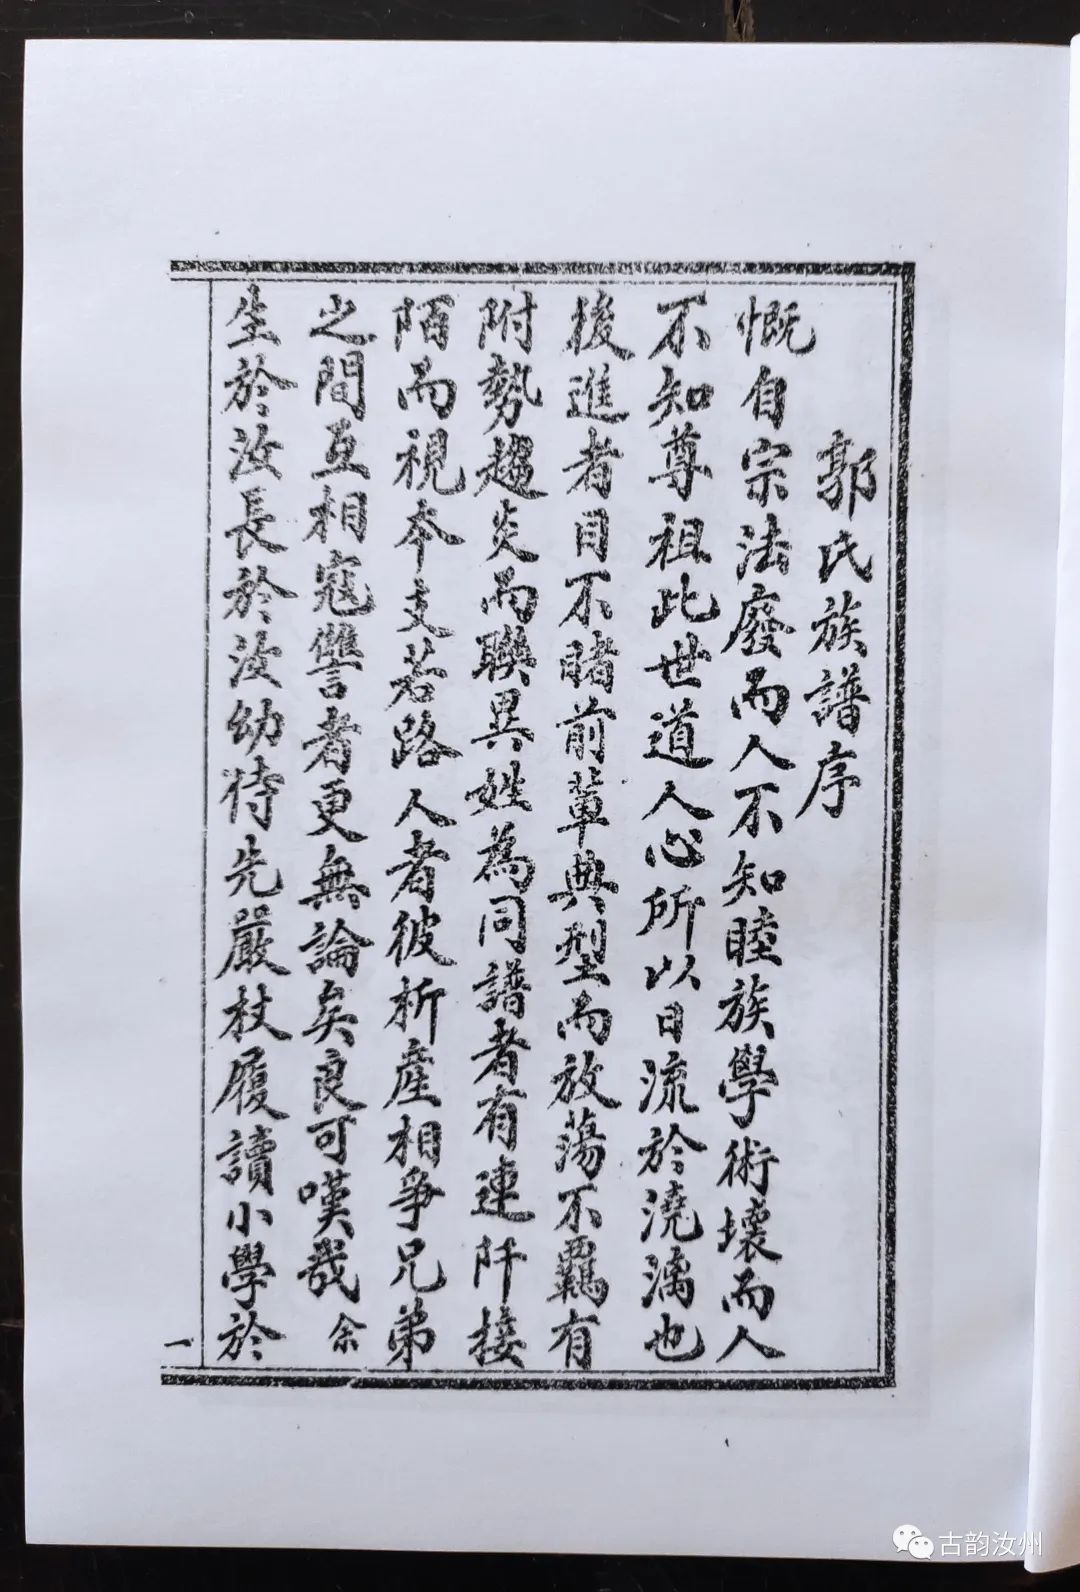 郭氏族譜序
慨自宗法廢而人不知睦族學術壞而人
不知尊祖此世道人心所以日流於澆漓也
後進者目不睹前輩典型而放蕩不羈有
附勢趨炎而聯異姓為同譜者有連阡接
陌而視本支若路人者彼析產相爭兄弟
之間互相寇讐者更無論矣良可嘆哉余
生於汝長於汝幼侍先嚴杖履讀小學於
一
古韵汝州